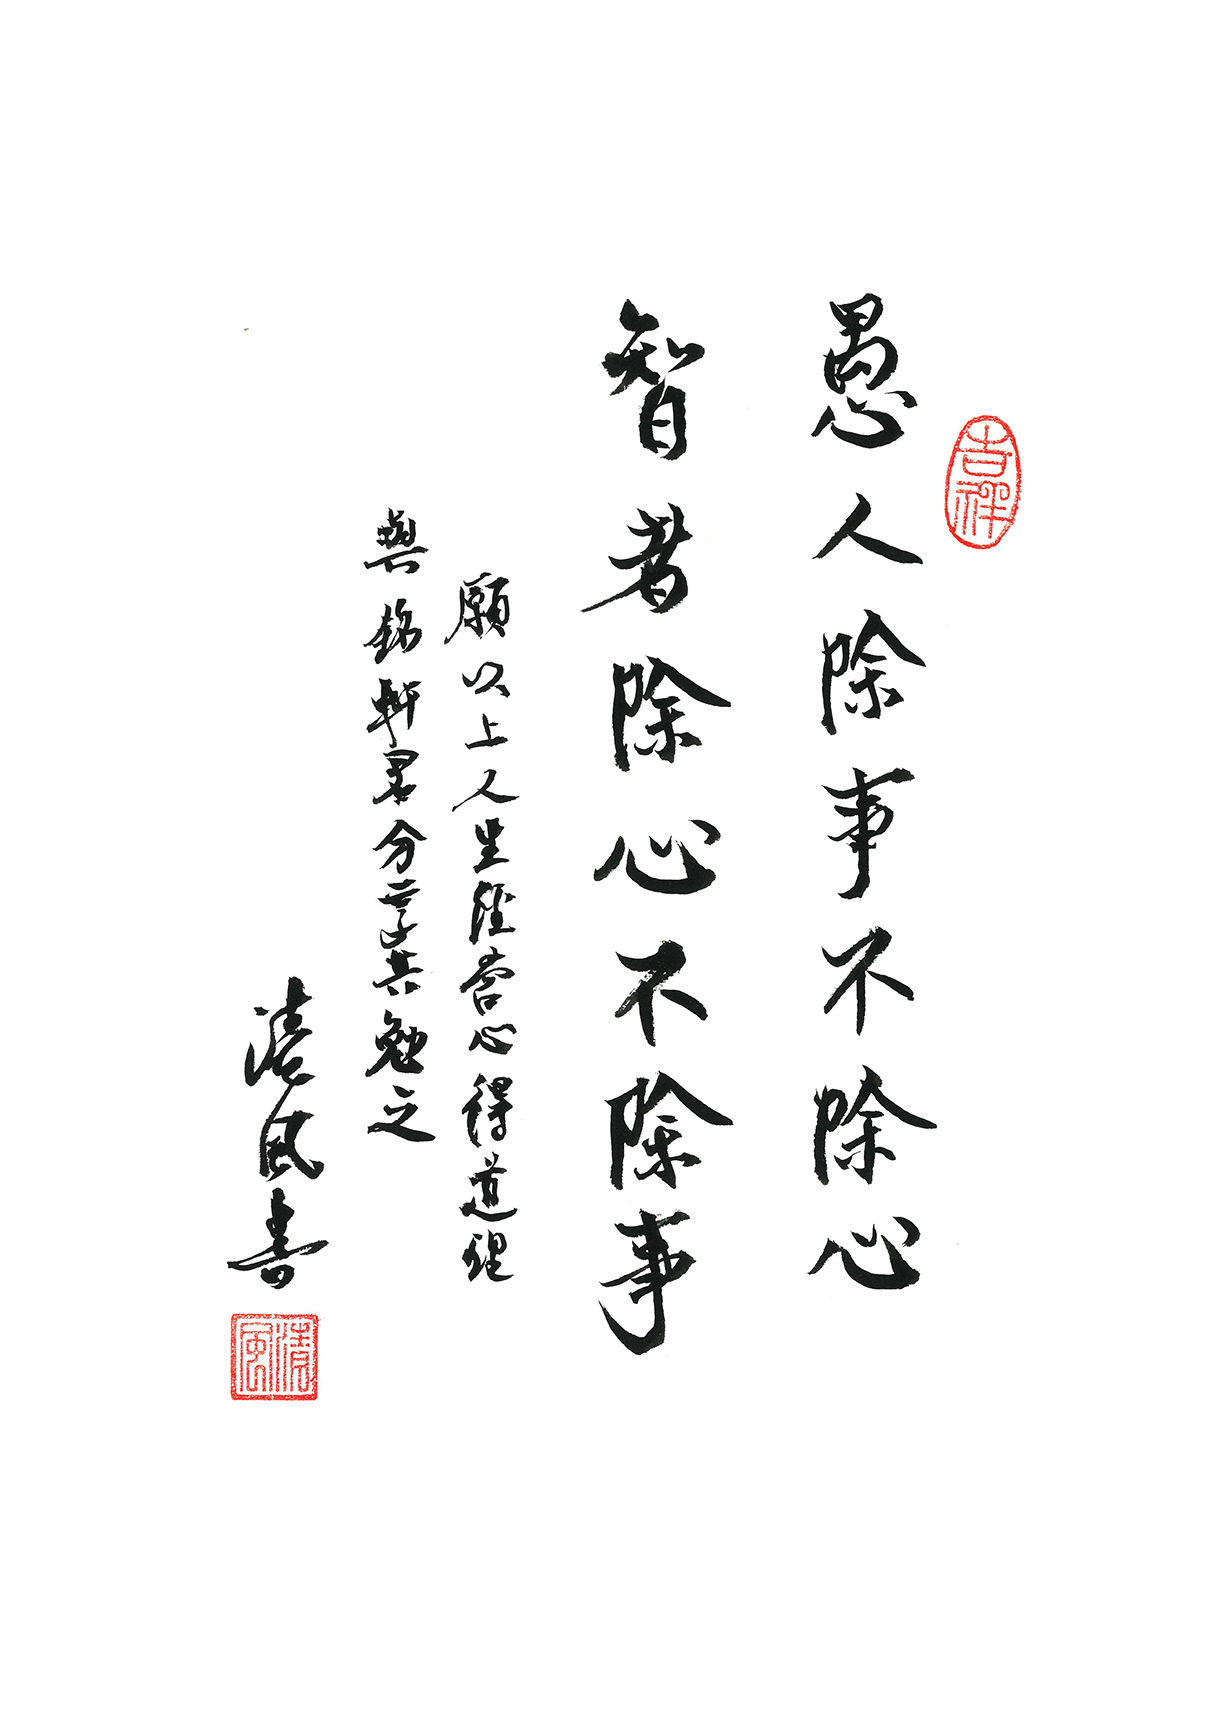 吉祥
愚人除事不除心
智者除心不除事
願以上人生經營心得道理
與銘軒君分享共勉之
清風書
清風